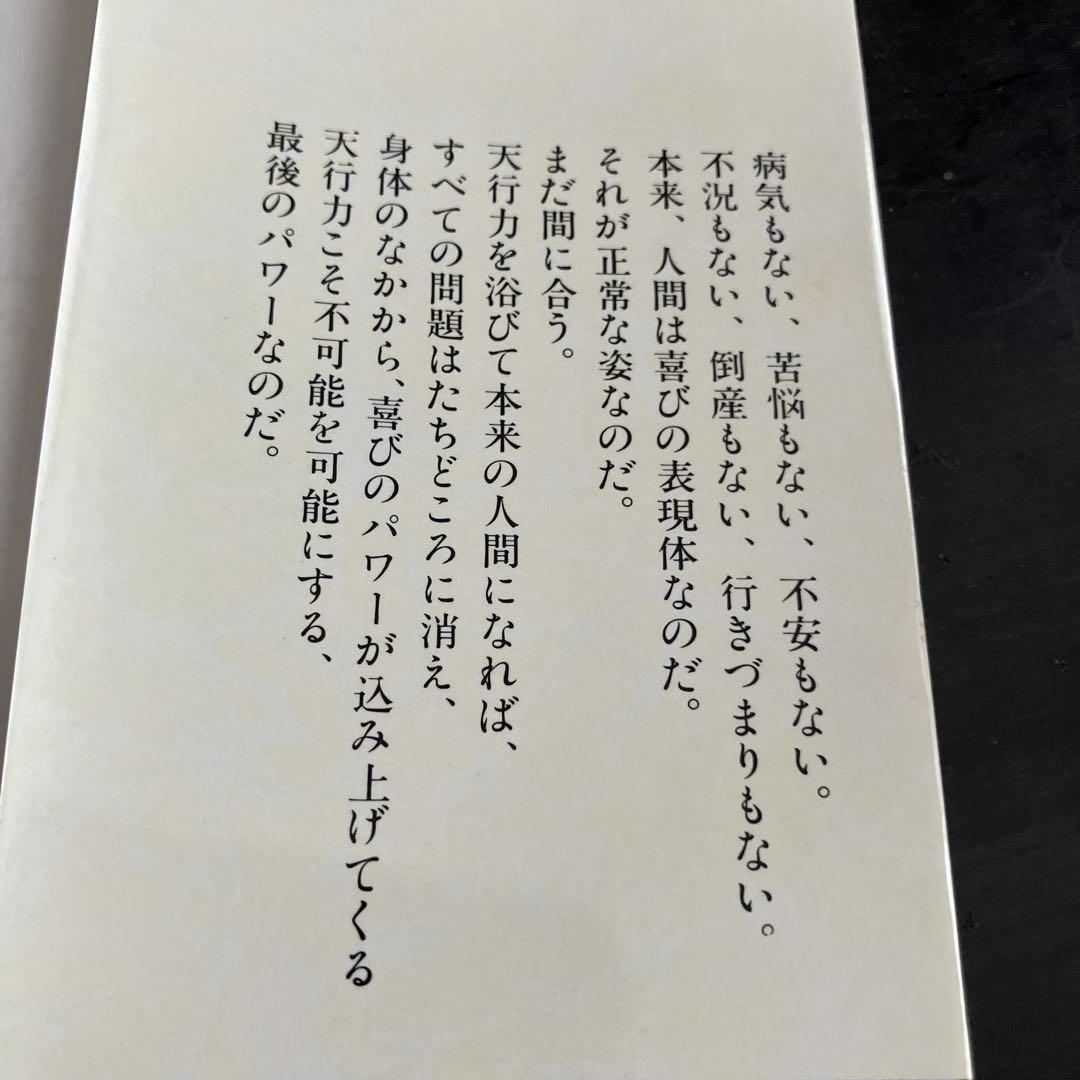 病気もない、苦悩もない、不安もない。
不況もない、倒産もない、行きづまりもない。
本来、人間は喜びの表現体なのだ。
それが正常な姿なのだ。
まだ間に合う。
天行力を浴びて本来の人間になれば、
すべての問題はたちどころに消え、
身体のなかから、喜びのパワーが込み上げてくる
天行力こそ不可能を可能にする、
最後のパワーなのだ。